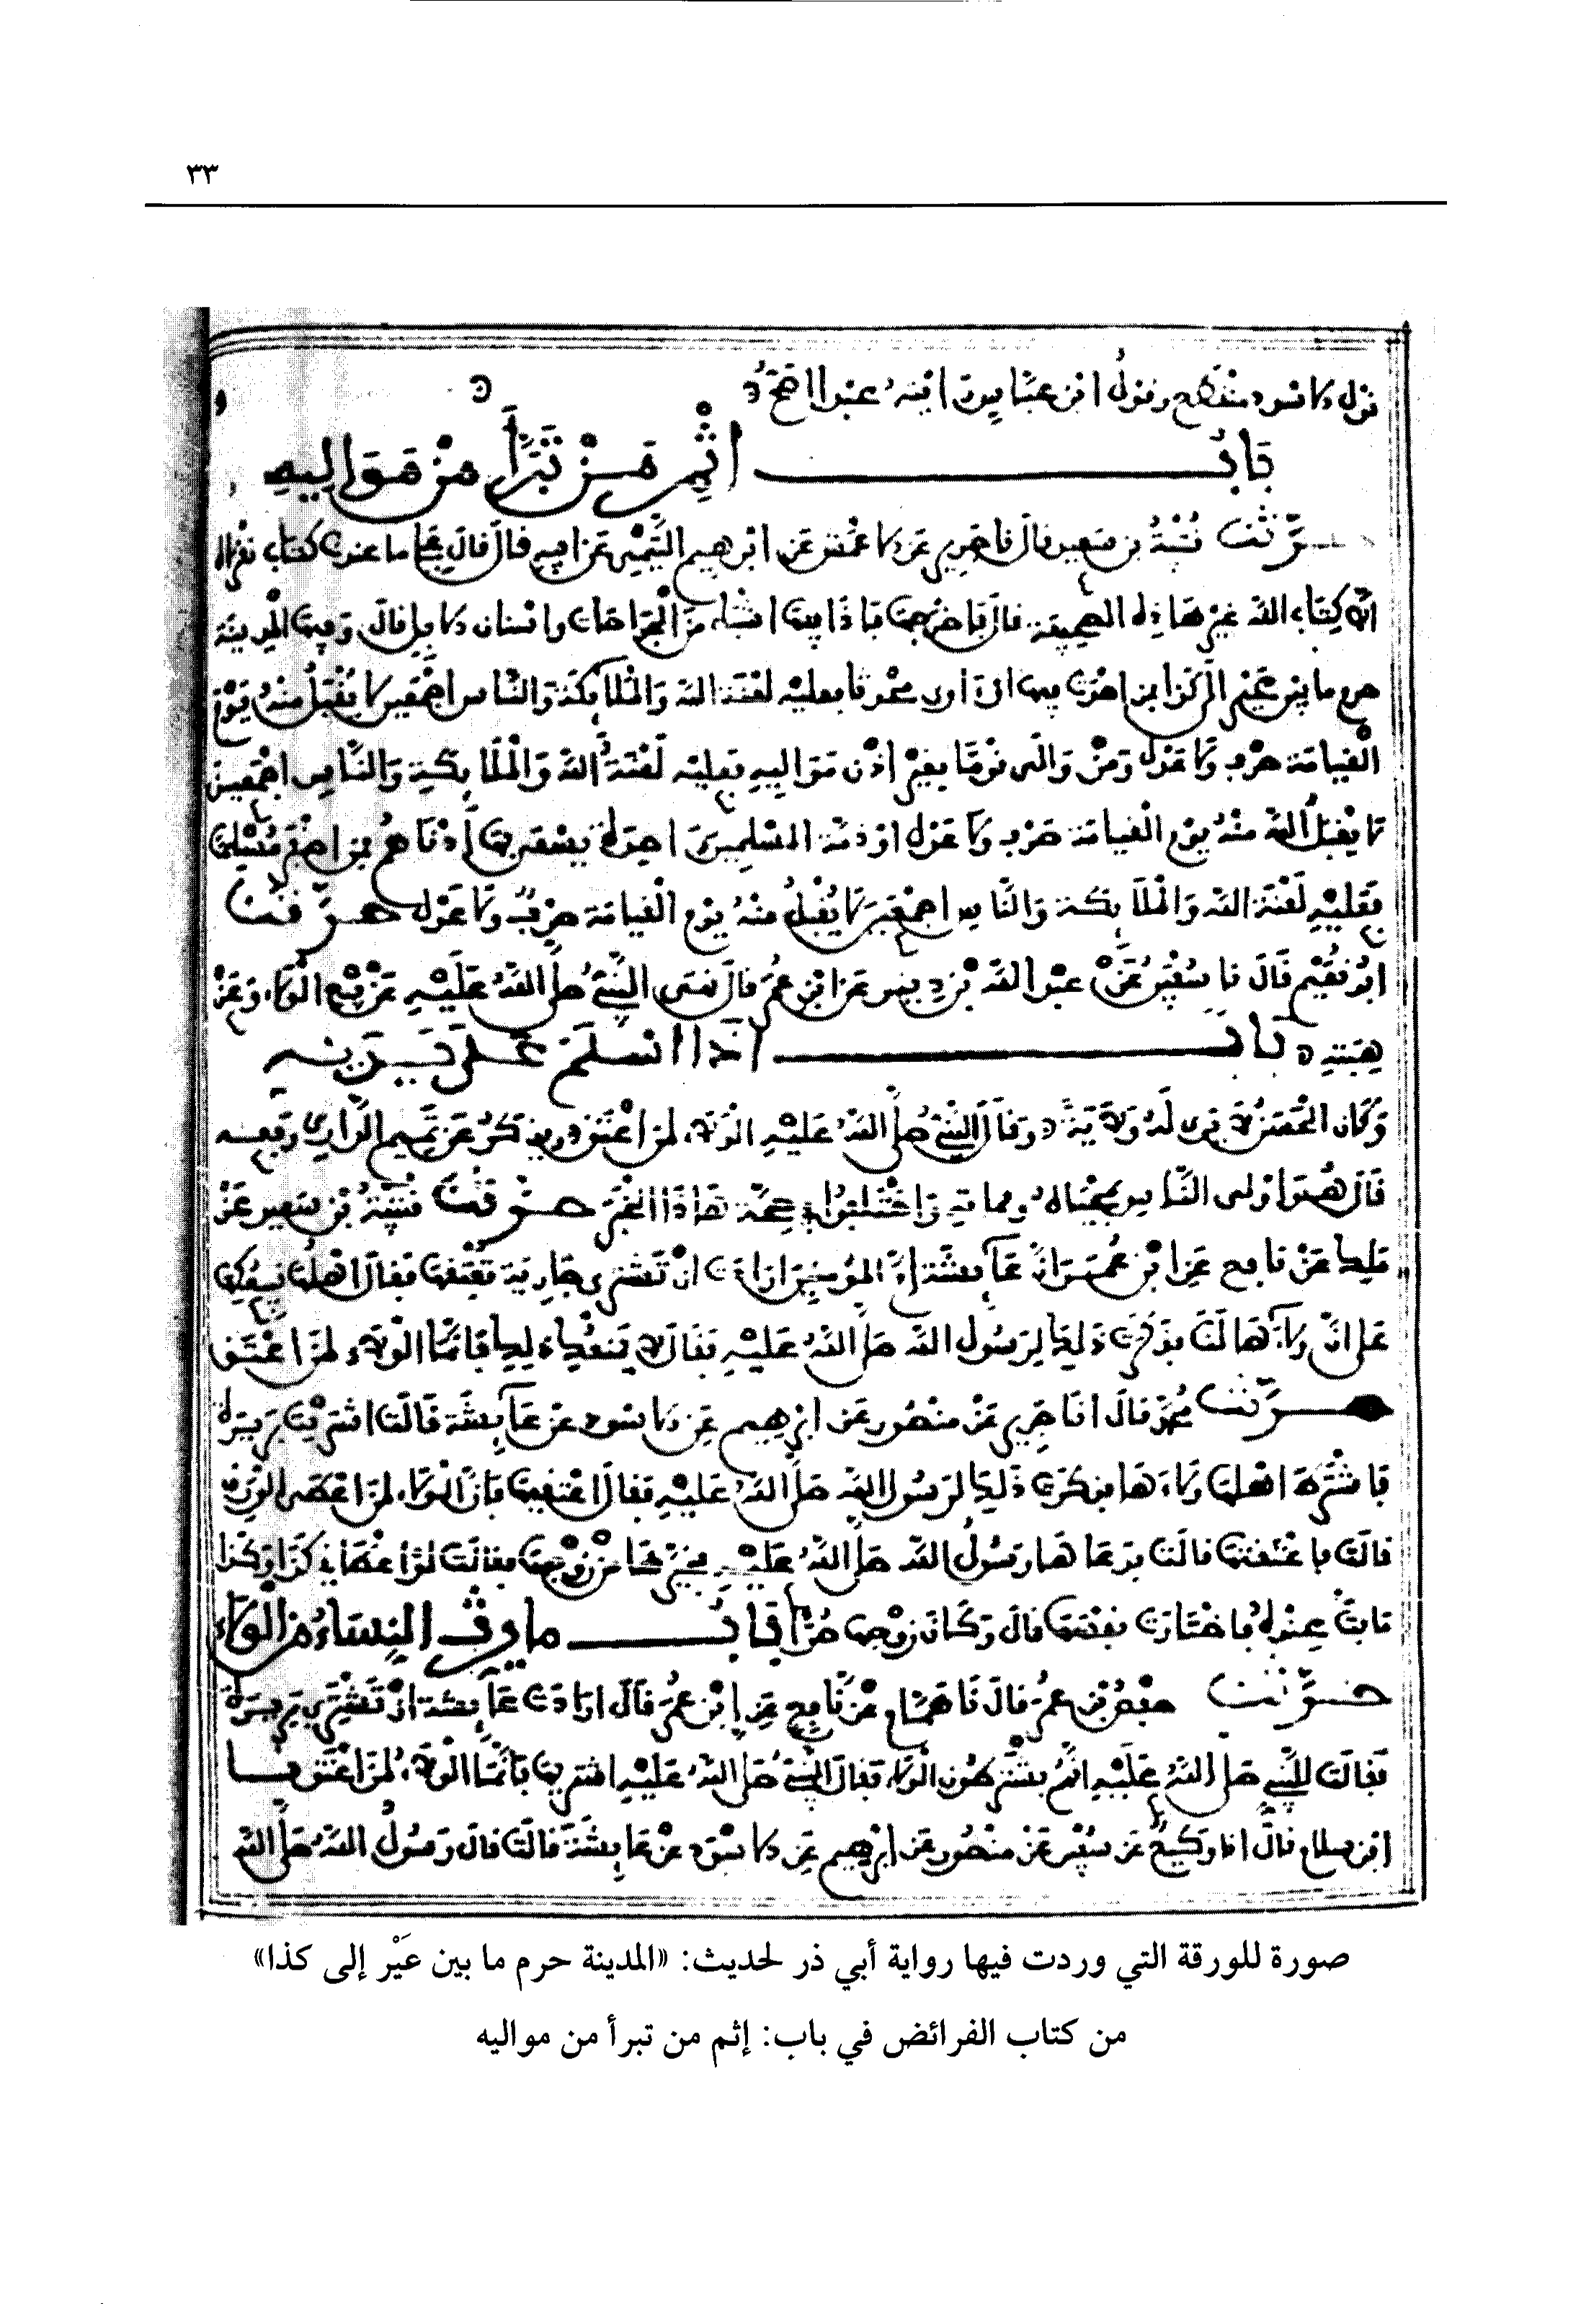 ٣٣
قول الاسود منقطع وقول ابن عباس رايته عبدا اصح
بَاب اثْمِ مَنْ تَبَرَّأَ مِنْ مَوَالِيهِ
حدثنا قتيبة بن سعيد قال نا جرير عن الاعمش عن ابرهيم التيمي عن ابيه قال قال علي ما عندنا كتاب نقراه
الا كتاب الله غير هاذه الصحيفة قال فاخرجها فاذا فيها اشياء من الجراحات واسنان الابل قال وفيها المدينة
حرم ما بين عير الى كذا من احدث فيها او اوى محدثا فعليه لعنة الله والملائكة والناس اجمعين لا يقبل منه يوم
القيامة صرف ولا عدل ومن والى قوما بغير اذن مواليه فعليه لعنة الله والملائكة والناس اجمعين
لا يقبل الله منه يوم القيامة صرف ولا عدل وذمة المسلمين واحدة يسعى بها ادناهم فمن اخفر مسلما
فعليه لعنة الله والملائكة والناس اجمعين لا يقبل منه يوم القيامة صرف ولا عدل حدثنا
ابو نعيم قال نا سفين عن عبد الله بن دينر عن ابن عمر قال نهى النبي صلى الله عليه عن بيع الولاء وعن
هبته باب اذا اسلم على يديه
وكان الحسن لا يرى له ولاية وقال النبي صلى الله عليه الولاء لمن اعتق ويذكر عن تميم الداري رفعه
قال هو اولى الناس بمحياه ومماته واختلفوا في صحة هاذا الخبر حدثنا قتيبة بن سعيد عن
ملك عن نافع عن ابن عمر ان عائشة ام المومنين ارادت ان تشتري جارية تعتقها فقال اهلها نبيعكها
على ان ولاءها لنا فذكرت ذلك لرسول الله صلى الله عليه فقال لا يمنعك ذلك فانما الولاء لمن اعتق
حدثنا محمد قال انا جرير عن منصور عن ابرهيم عن الاسود عن عائشة قالت اشتريت بريرة
فاشترط اهلها ولاءها فذكرت ذلك لرسول الله صلى الله عليه فقال اعتقيها فان الولاء لمن اعطى الورق
قالت فاعتقتها قالت فدعاها رسول الله صلى الله عليه فخيرها من زوجها فقالت لو اعطاني كذا وكذا
ما بت عنده فاختارت نفسها قال وكان زوجها حرا باب ما يرث النساء من الولاء
حدثنا حفص بن عمر قال نا همام عن نافع عن ابن عمر قال ارادت عائشة ان تشتري بريرة
فقالت للنبي صلى الله عليه انهم يشترطون الولاء فقال النبي صلى الله عليه اشتريها فانما الولاء لمن اعتق نا
ابن سلام قال انا وكيع عن سفين عن منصور عن ابرهيم عن الاسود عن عائشة قالت قال رسول الله صلى الله
صورة للورقة التي وردت فيها رواية أبي ذر لحديث: «المدينة حرم ما بين عَيْر إلى كذا»
من كتاب الفرائض في باب: إثم من تبرأ من مواليه